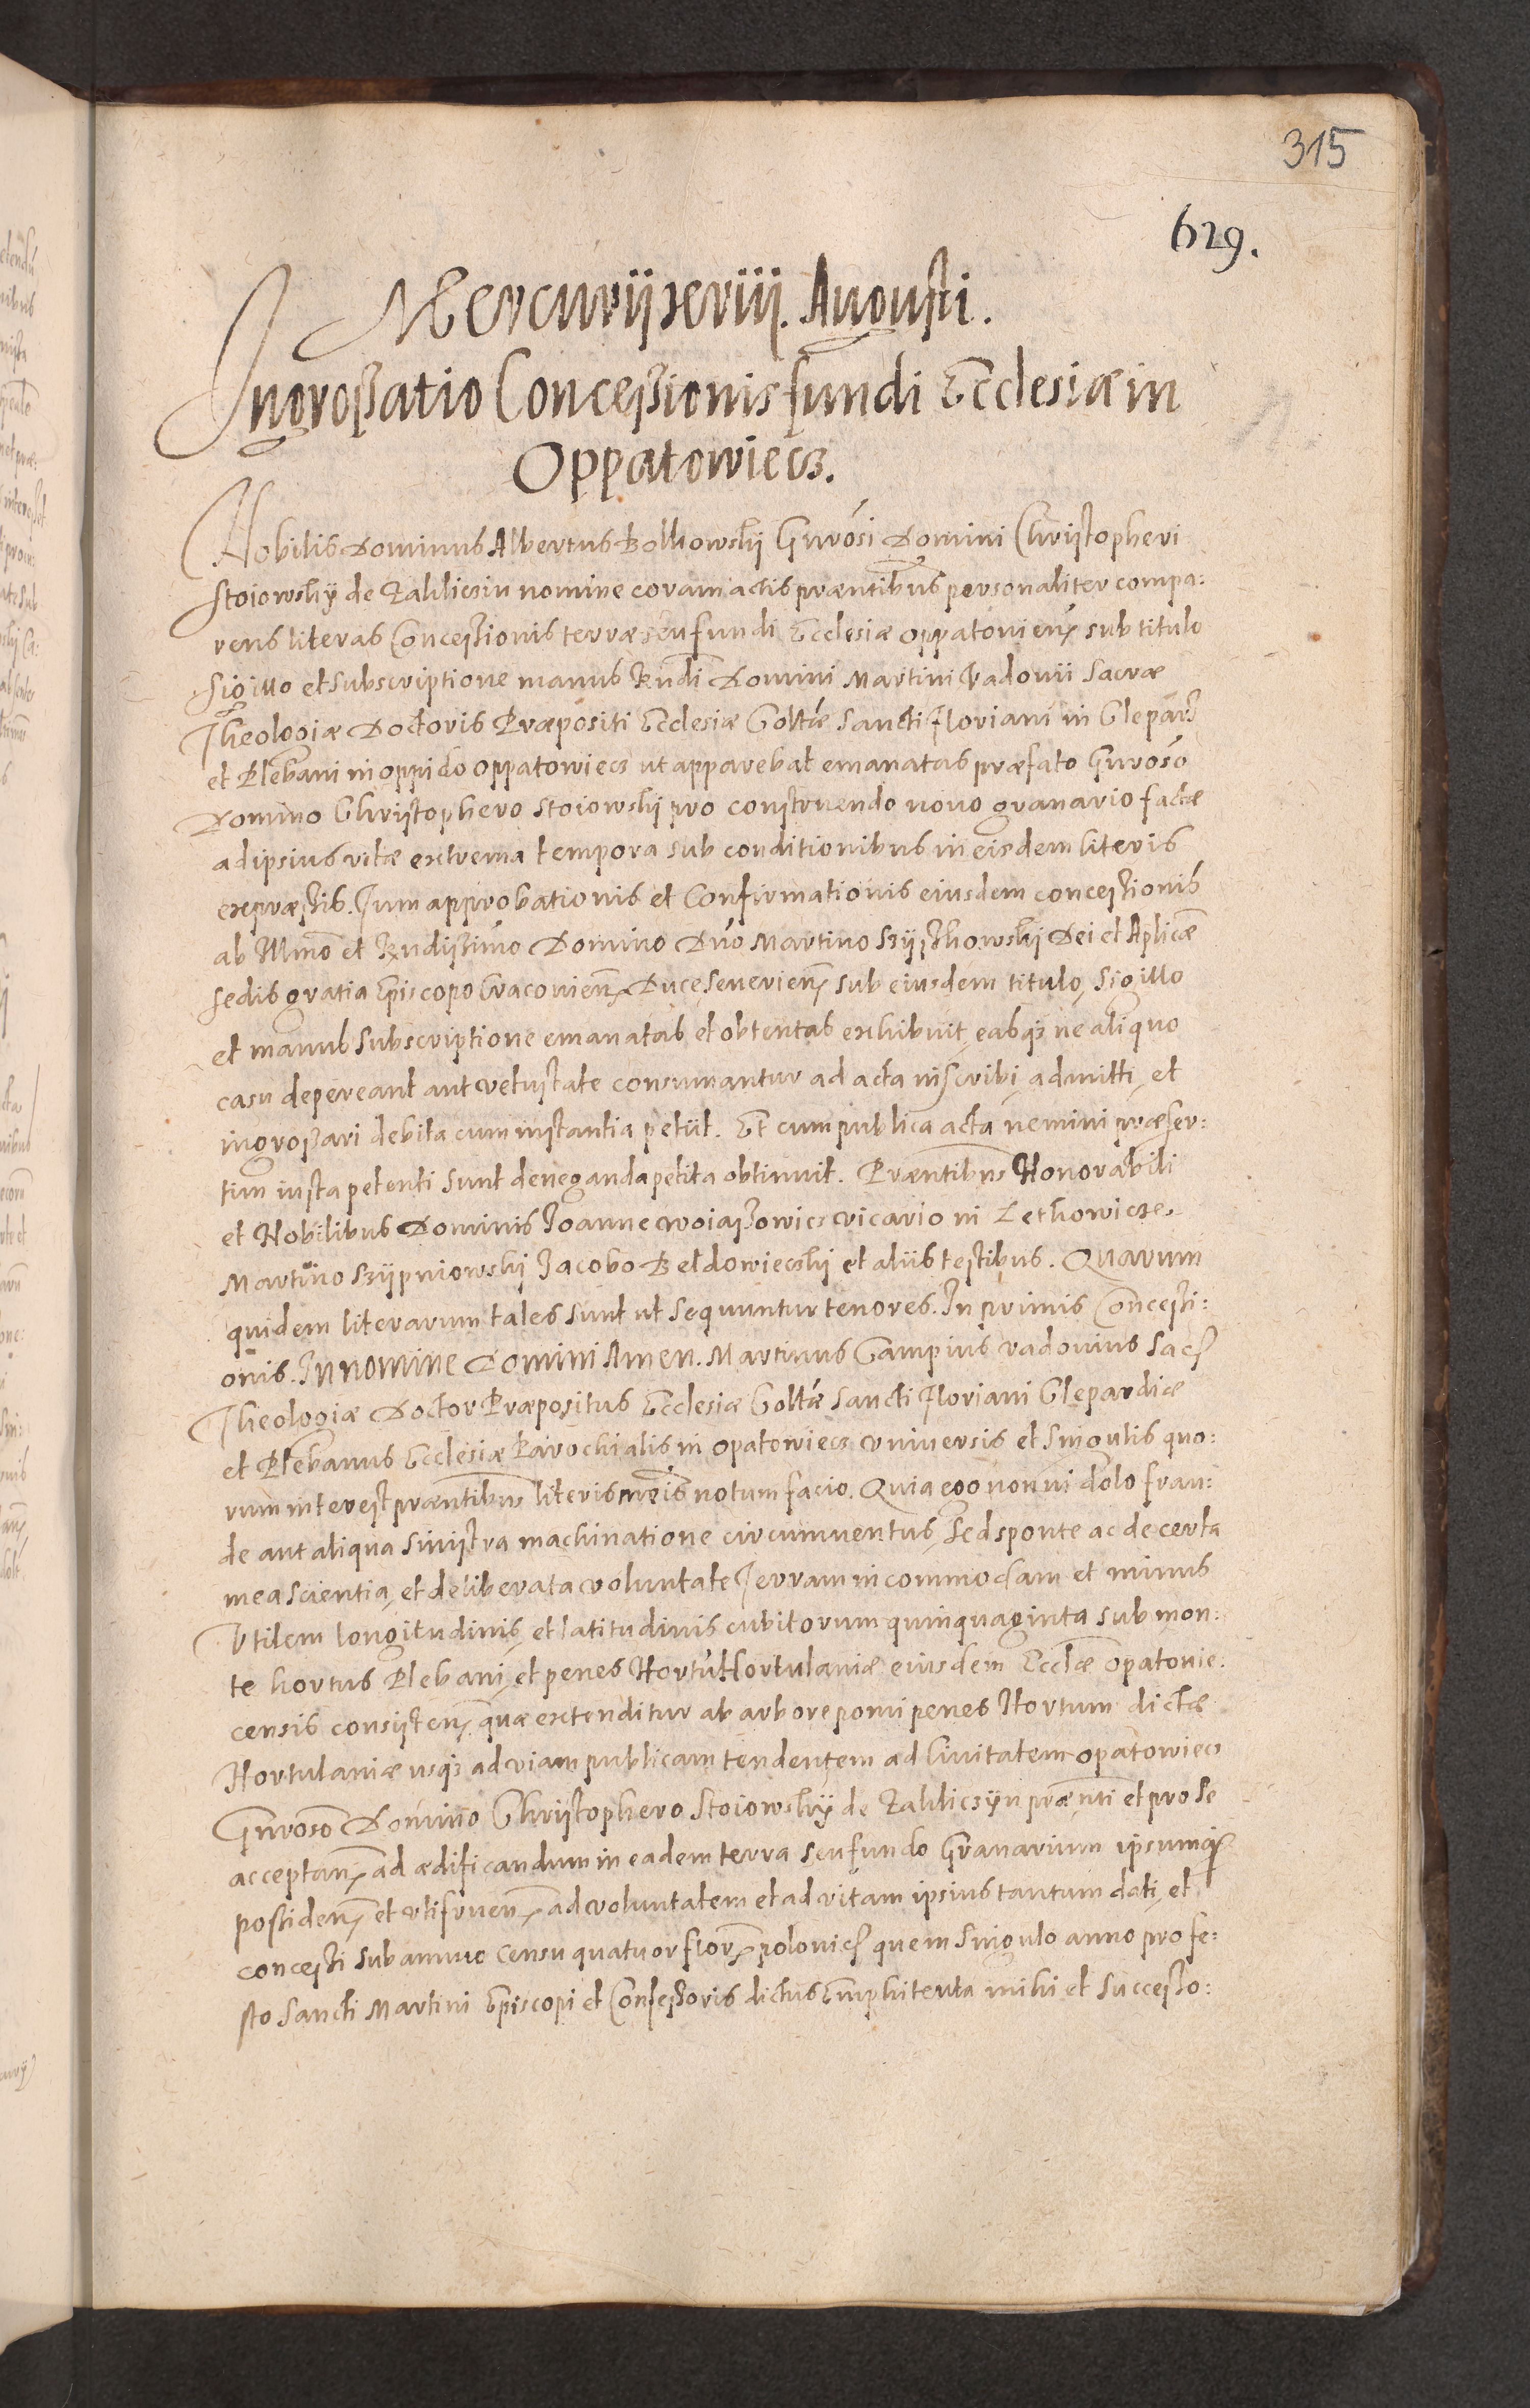 315
629.
Mercurij xxviij. Augusti.
Ingroßatio Conceßionis fundi Ecclesiæ in
Oppatowiecz.
Nobilis Dominus Albertus Bolkowskij Gnrosi Domini Christopheri
Stoiowskÿ de Zakliczin nomine coram actis præntibus personaliter compa:
rens literas Conceßionis terræ seu fundi Ecclesiæ Oppatouien̄ sub titulo
Sigillo et subscriptione manus Rndi Domini Martini Vadouii Sacræ
Theologiæ Doctoris Præpositi Ecclesiæ Colltæ Sancti Floriani in Clepar
et Plebani in oppido Oppatowiecz ut apparebat emanatas præfato Gnroso
Domino Christophero Stoiowski pro construendo nouo granario factæ
ad ipsius vitæ extrema tempora sub conditionibus in eisdem literis
expræßis. Tum approbationis et Confirmationis eiusdem conceßionis
ab Illmo et Rndißimo Domino Dno Martino Szÿszkowskij Dei et Aplicæ
sedis gratia Episcopo Cracouien̄ Duce Seuerien̄ sub eiusdem titulo, Sigillo
et manus Subscriptione emanatas et obtentas exhibuit, easq3 ne aliquo
casu depereant aut vetustate consumantur ad acta inscribi, admitti, et
ingroßari debita cum instantia petiit. Et cum publica acta nemini præser:
tim iusta petenti sunt deneganda petita obtinuit. Præntibus Honorabili
et Nobilibus Dominis Joanne Woiaßowicz vicario in Lethowicze,
Martino Szÿpniowski Jacobo Beldowieczki et aliis testibus. Quarum
quidem literarum tales sunt ut sequuntur tenores. In primis Conceßi:
onis. In nomine Domini Amen. Martinus Campius Vadouius Sac
Theologiæ Doctor Præpositus Ecclesiæ Colltæ Sancti Floriani Clepardiæ
et Plebanus Ecclesiæ Parochialis in Opatowiecz vniuersis et Singulis quo:
rum interest præntibus literis meis notum facio. Quia ego non vi dolo frau:
de aut aliqua sinistra machinatione circumuentus, sed sponte ac de certa
mea scientia, et deliberata voluntate Terram incommodam et minus
Vtilem longitudinis, et latitudinis cubitorum quinquaginta sub mon:
te hortus Plebani, et penes Hortū Hortulaniæ eiusdem Ecclæ Opatouie:
censis consisten̄ quæ extenditur ab arbore pomi penes Hortum dictæ
Hortulaniæ usq3 ad viam publicam tendentem ad Ciuitatem Opatowiecz
Gnroso Domino Christophero Stoiowskÿ de Zakliczÿn prænti et pro se
acceptan̄ ad ædificandum in eadem terra seu fundo Granarium ipsumq3
poßiden̄ et vtifruen̄ ad voluntatem et ad vitam ipsius tantum dati, et
conceßi sub annuo censu quatuor flor polonic quem singulo anno pro fe:
sto Sancti Martini Episcopi et Confeßoris dictus Emphiteuta mihi et Succeßo: